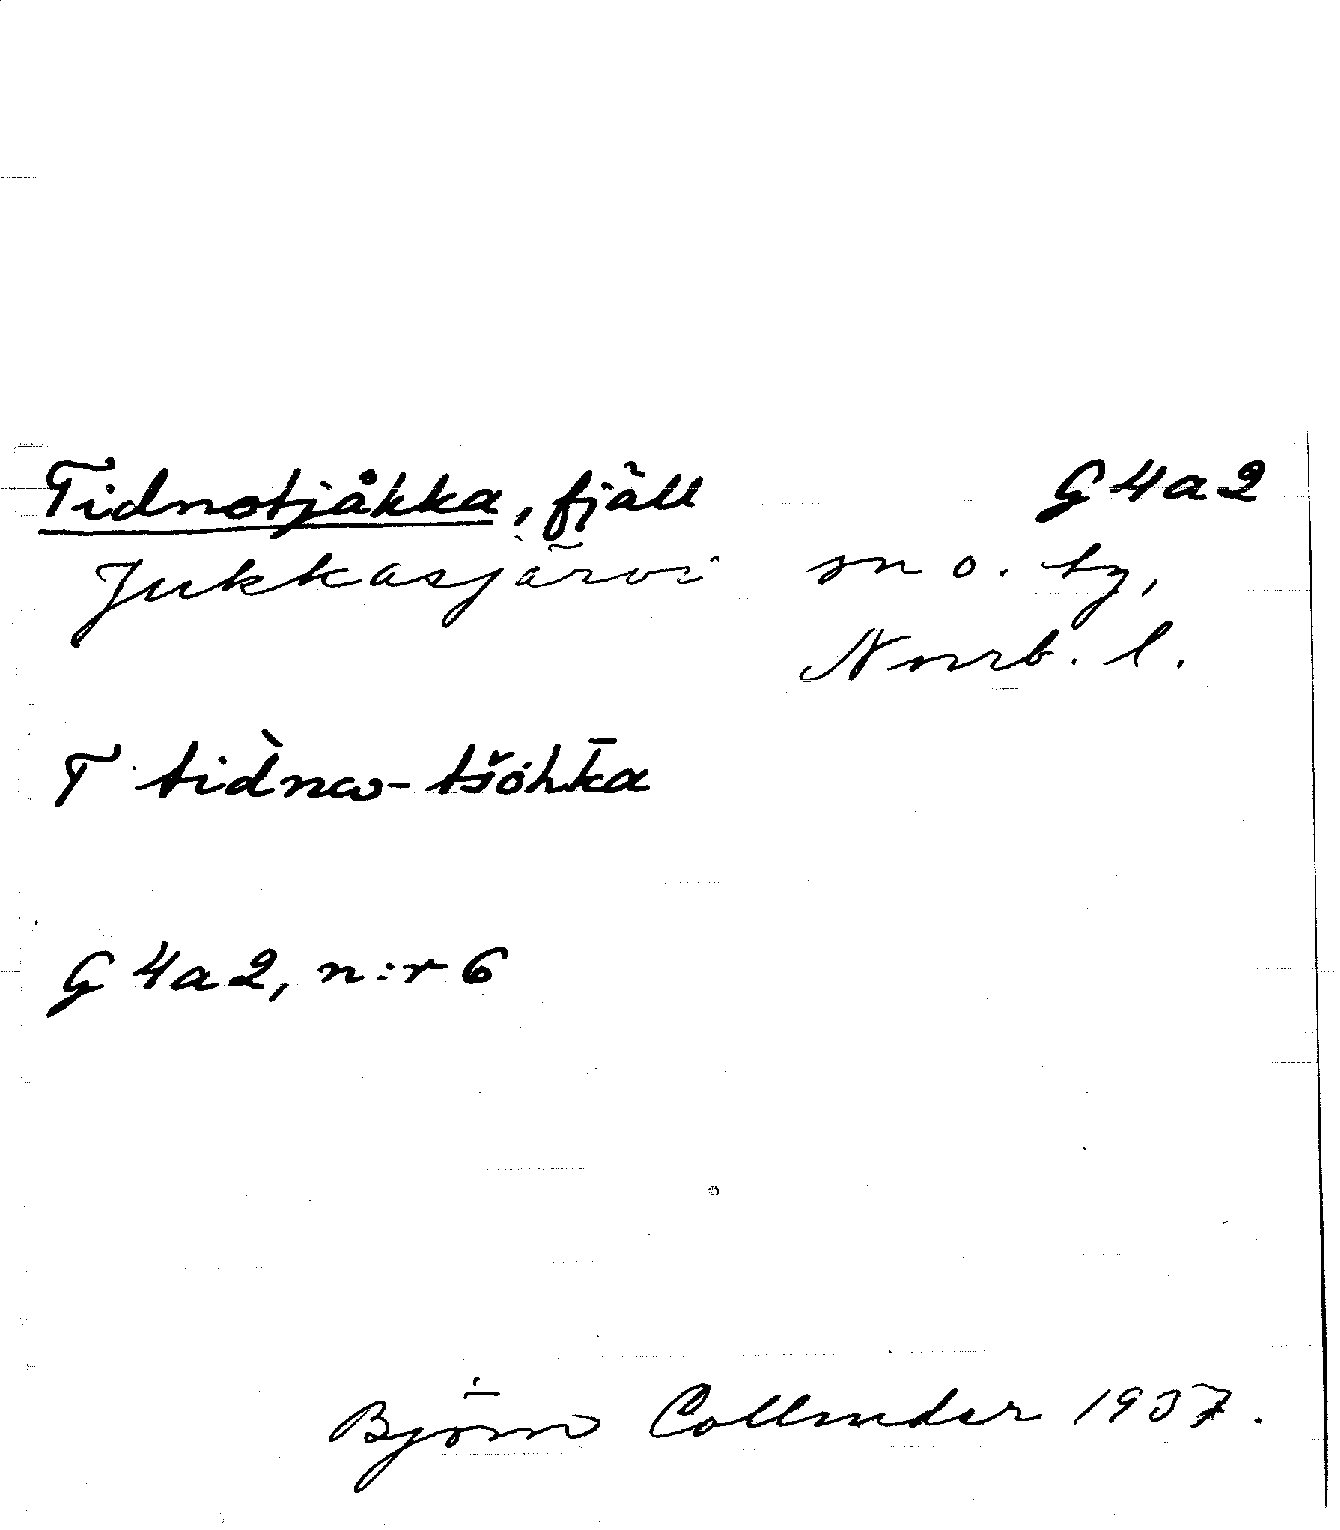 Tidnotjåkka, fjäll G4a2
Jukkasjärvi sn o. tg,
Norrb. l.
T tìdnɷ-tšòhk̄a
G4a2, n:r 6
Björn Collinder 1937.